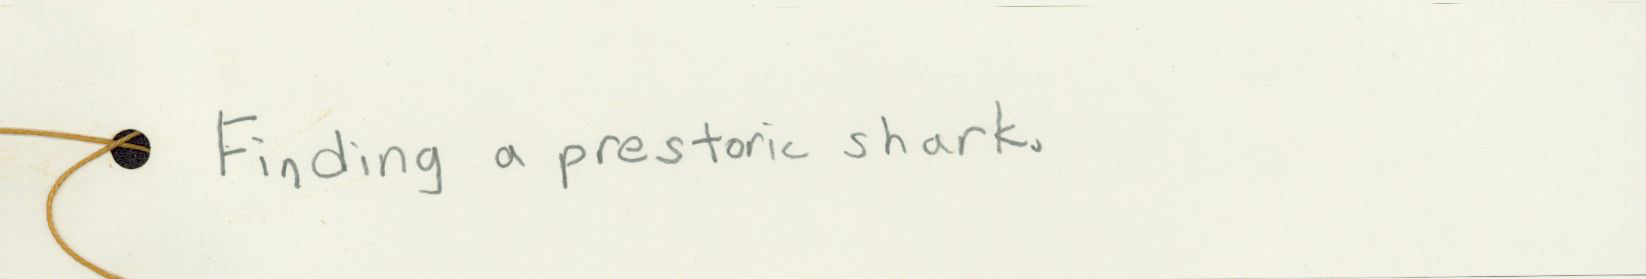 Finding a prestoric shark.